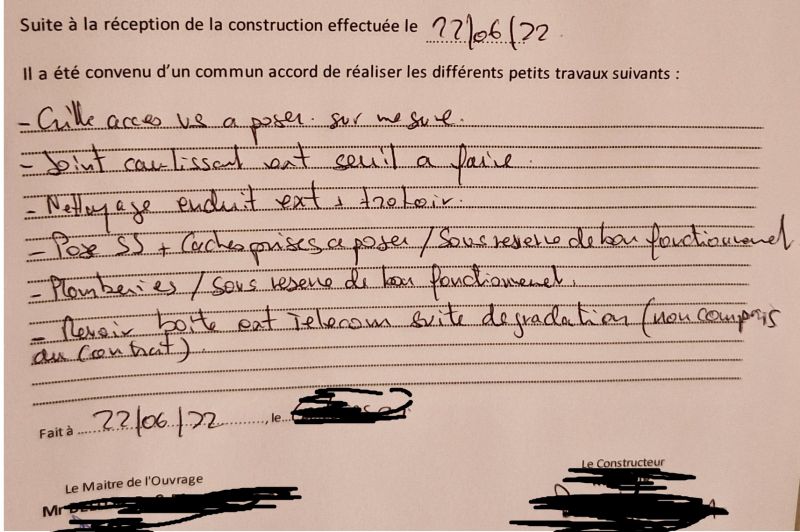 Suite à la réception de la construction effectuée le 22/06/22
Il a été convenu d'un commun accord de réaliser les différents petits travaux suivants :
- Grille acces VS a poser. sur mesure.
- Joint coulissant ext seuil a faire.
- Nettoyage enduit ext + trotoir.
- Pose SS + Caches prises a poser / Sous reserve de bon fonctionnement
- Plomberies / Sous reserve de bon fonctionnement.
- Revoir boite ext Telecom suite degradation (non compris
au Contrat)
Fait à 22/06/22, le
Le Maitre de l'Ouvrage
Le Constructeur
Mr